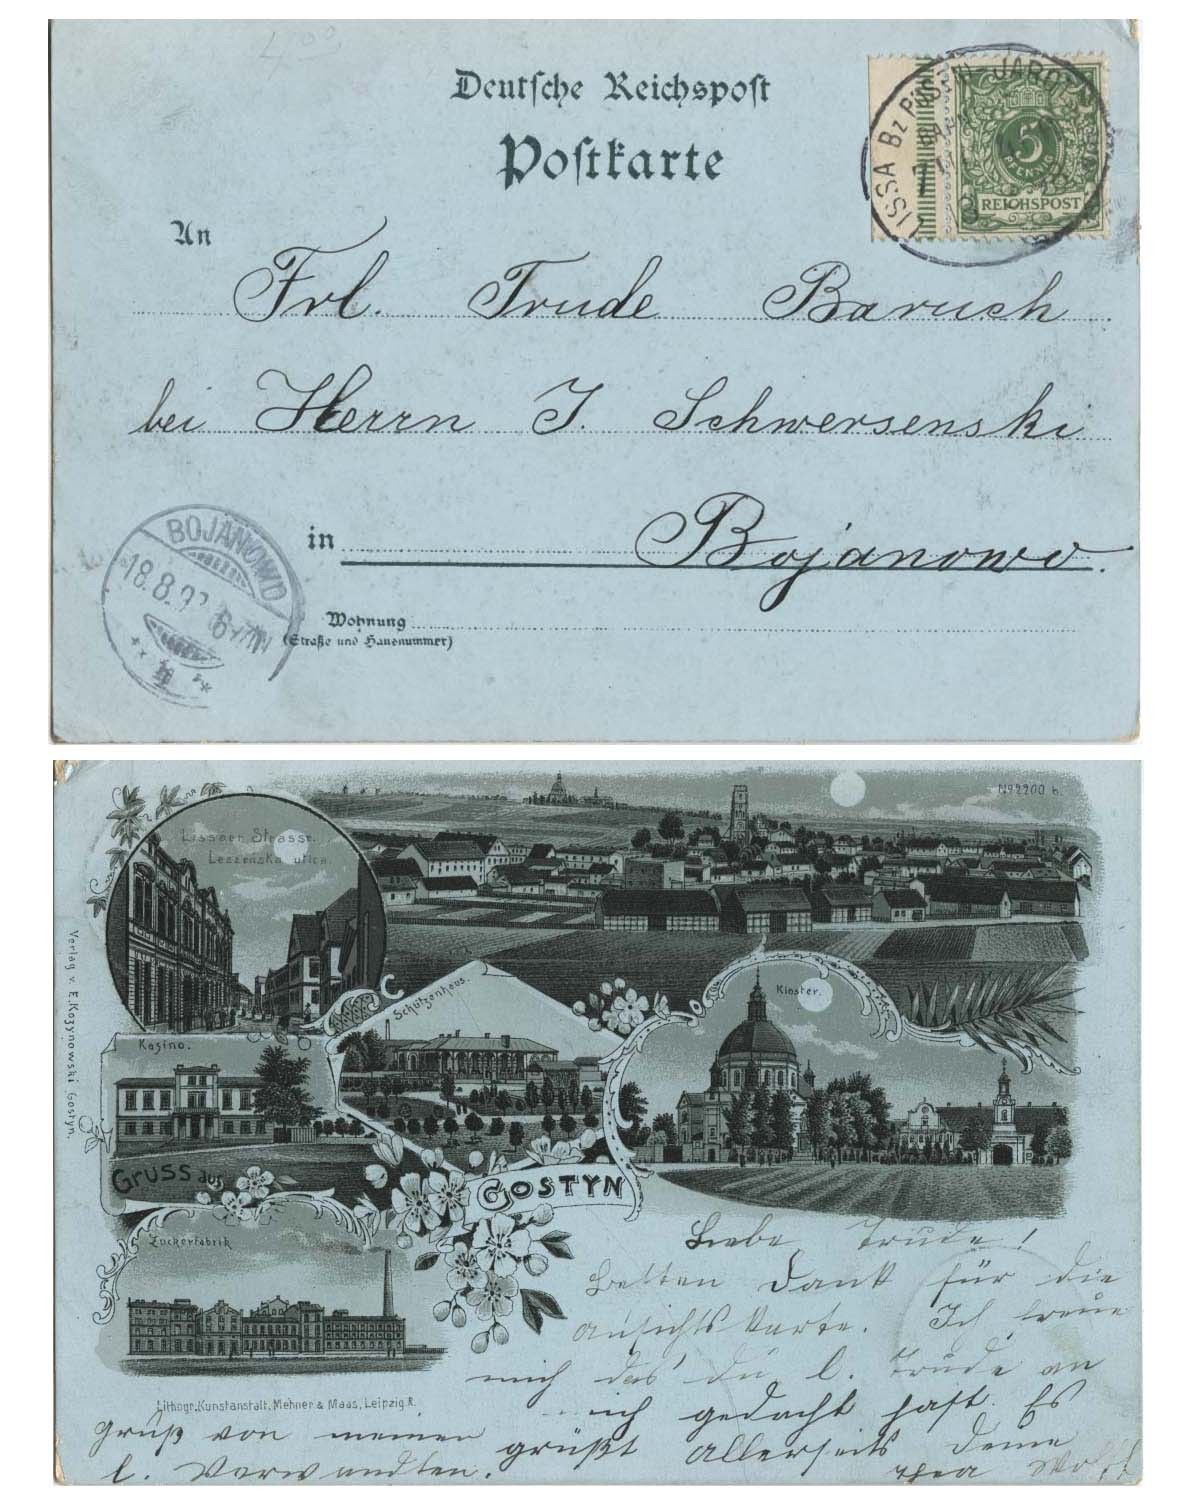 Deutsche Reichspost
Postkarte
LISSA Bz POSEN-JAROTSCHIN
5
PFENNIG
REICHSPOST
An
Frl. Trude Baruch
bei Herrn J. Schwersenski
in Bojanowo.
BOJANOWO
18.8.
Wohnung
(Straße und Hausnummer)
No 2200 b.
Lissaer Strasse.
Leszeńska ulica.
Schützenhaus.
Kloster.
Kasino.
Verlag v. E. Kozynowski Gostyn.
Gruss aus
GOSTYN
Zuckerfabrik
Lithogr. Kunstanstalt, Mehner & Maas, Leipzig R.
Liebe Trude!
Besten Dank für die
Ansichtskarte. Ich freue
mich das du l. Trude an
mich gedacht hast. Es
grüßt allerseits Deine
Thea Wolff
Grüß von meinen
l. Verwandten.